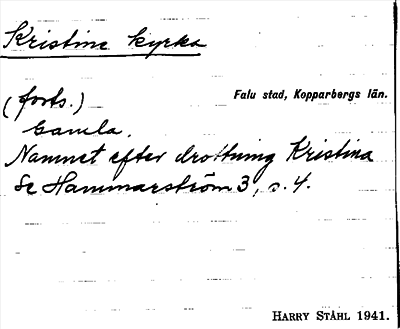 Kristine kyrka
(forts.)
Falu stad, Kopparbergs län.
Gamla.
Namnet efter drottning Kristina
Se Hammarström 3, s. 4.
HARRY STÅHL 1941.